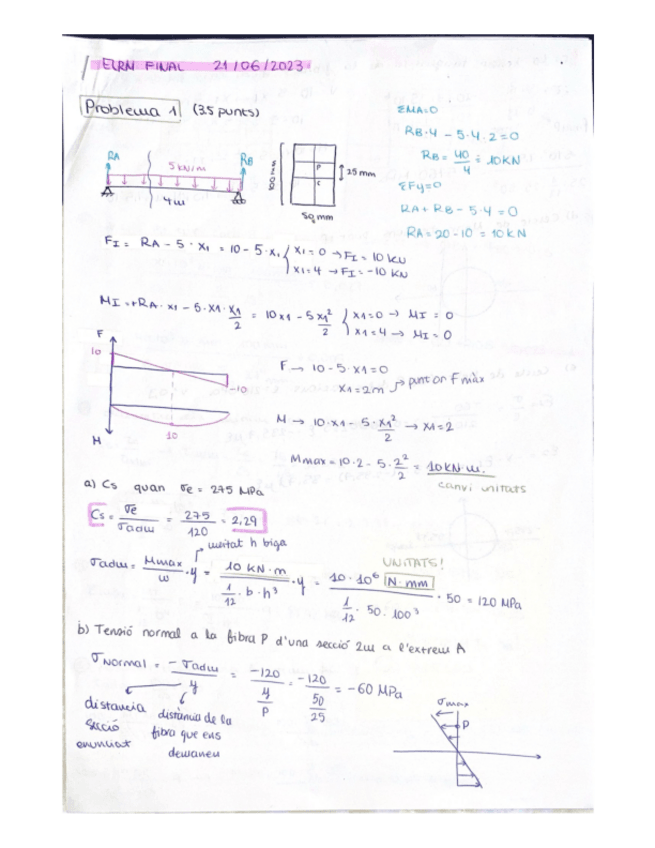 ELRM FINAL 21/06/2023
Problema 1 (3.5 punts)
ΣMA=0
RB·4 - 5·4·2=0
RB = 40/4 = 10KN
ΣFy=0
RA + RB - 5·4 = 0
RA = 20-10 = 10KN
RA
5KN/m
RB
4m
P
C
25mm
50mm
FI = RA - 5·x1 = 10-5·x1 { x1=0 → FI = 10 kN
x1=4 → FI = -10 kN
MI=+RA·x1 - 5·x1·x1/2 = 10x1 - 5x1²/2 { x1=0 → MI = 0
x1=4 → MI = 0
F
10
-10
10
M
F → 10-5·x1=0
x1=2m → punt on F màx
M → 10·x1 - 5·x1²/2 → x1=2
Mmax = 10·2 - 5·2²/2 = 10KN·m.
canvi unitats
a) Cs quan σe = 275 MPa
Cs = σe/σadm = 275/120 = 2,29
meitat h biga
UNITATS!
σadm = Mmax/w · y = 10 KN·m / (1/12 · b·h³) · y = 10·10⁶ N·mm / (1/12 · 50·100³) · 50 = 120 MPa
b) Tensió normal a la fibra P d'una secció 2m a l'extrem A
σNormal = -σadm/y = -120/(y/P) = -120/(50/25) = -60 MPa
distancia secció enunciat
distància de la fibra que ens demanen
σmax
P